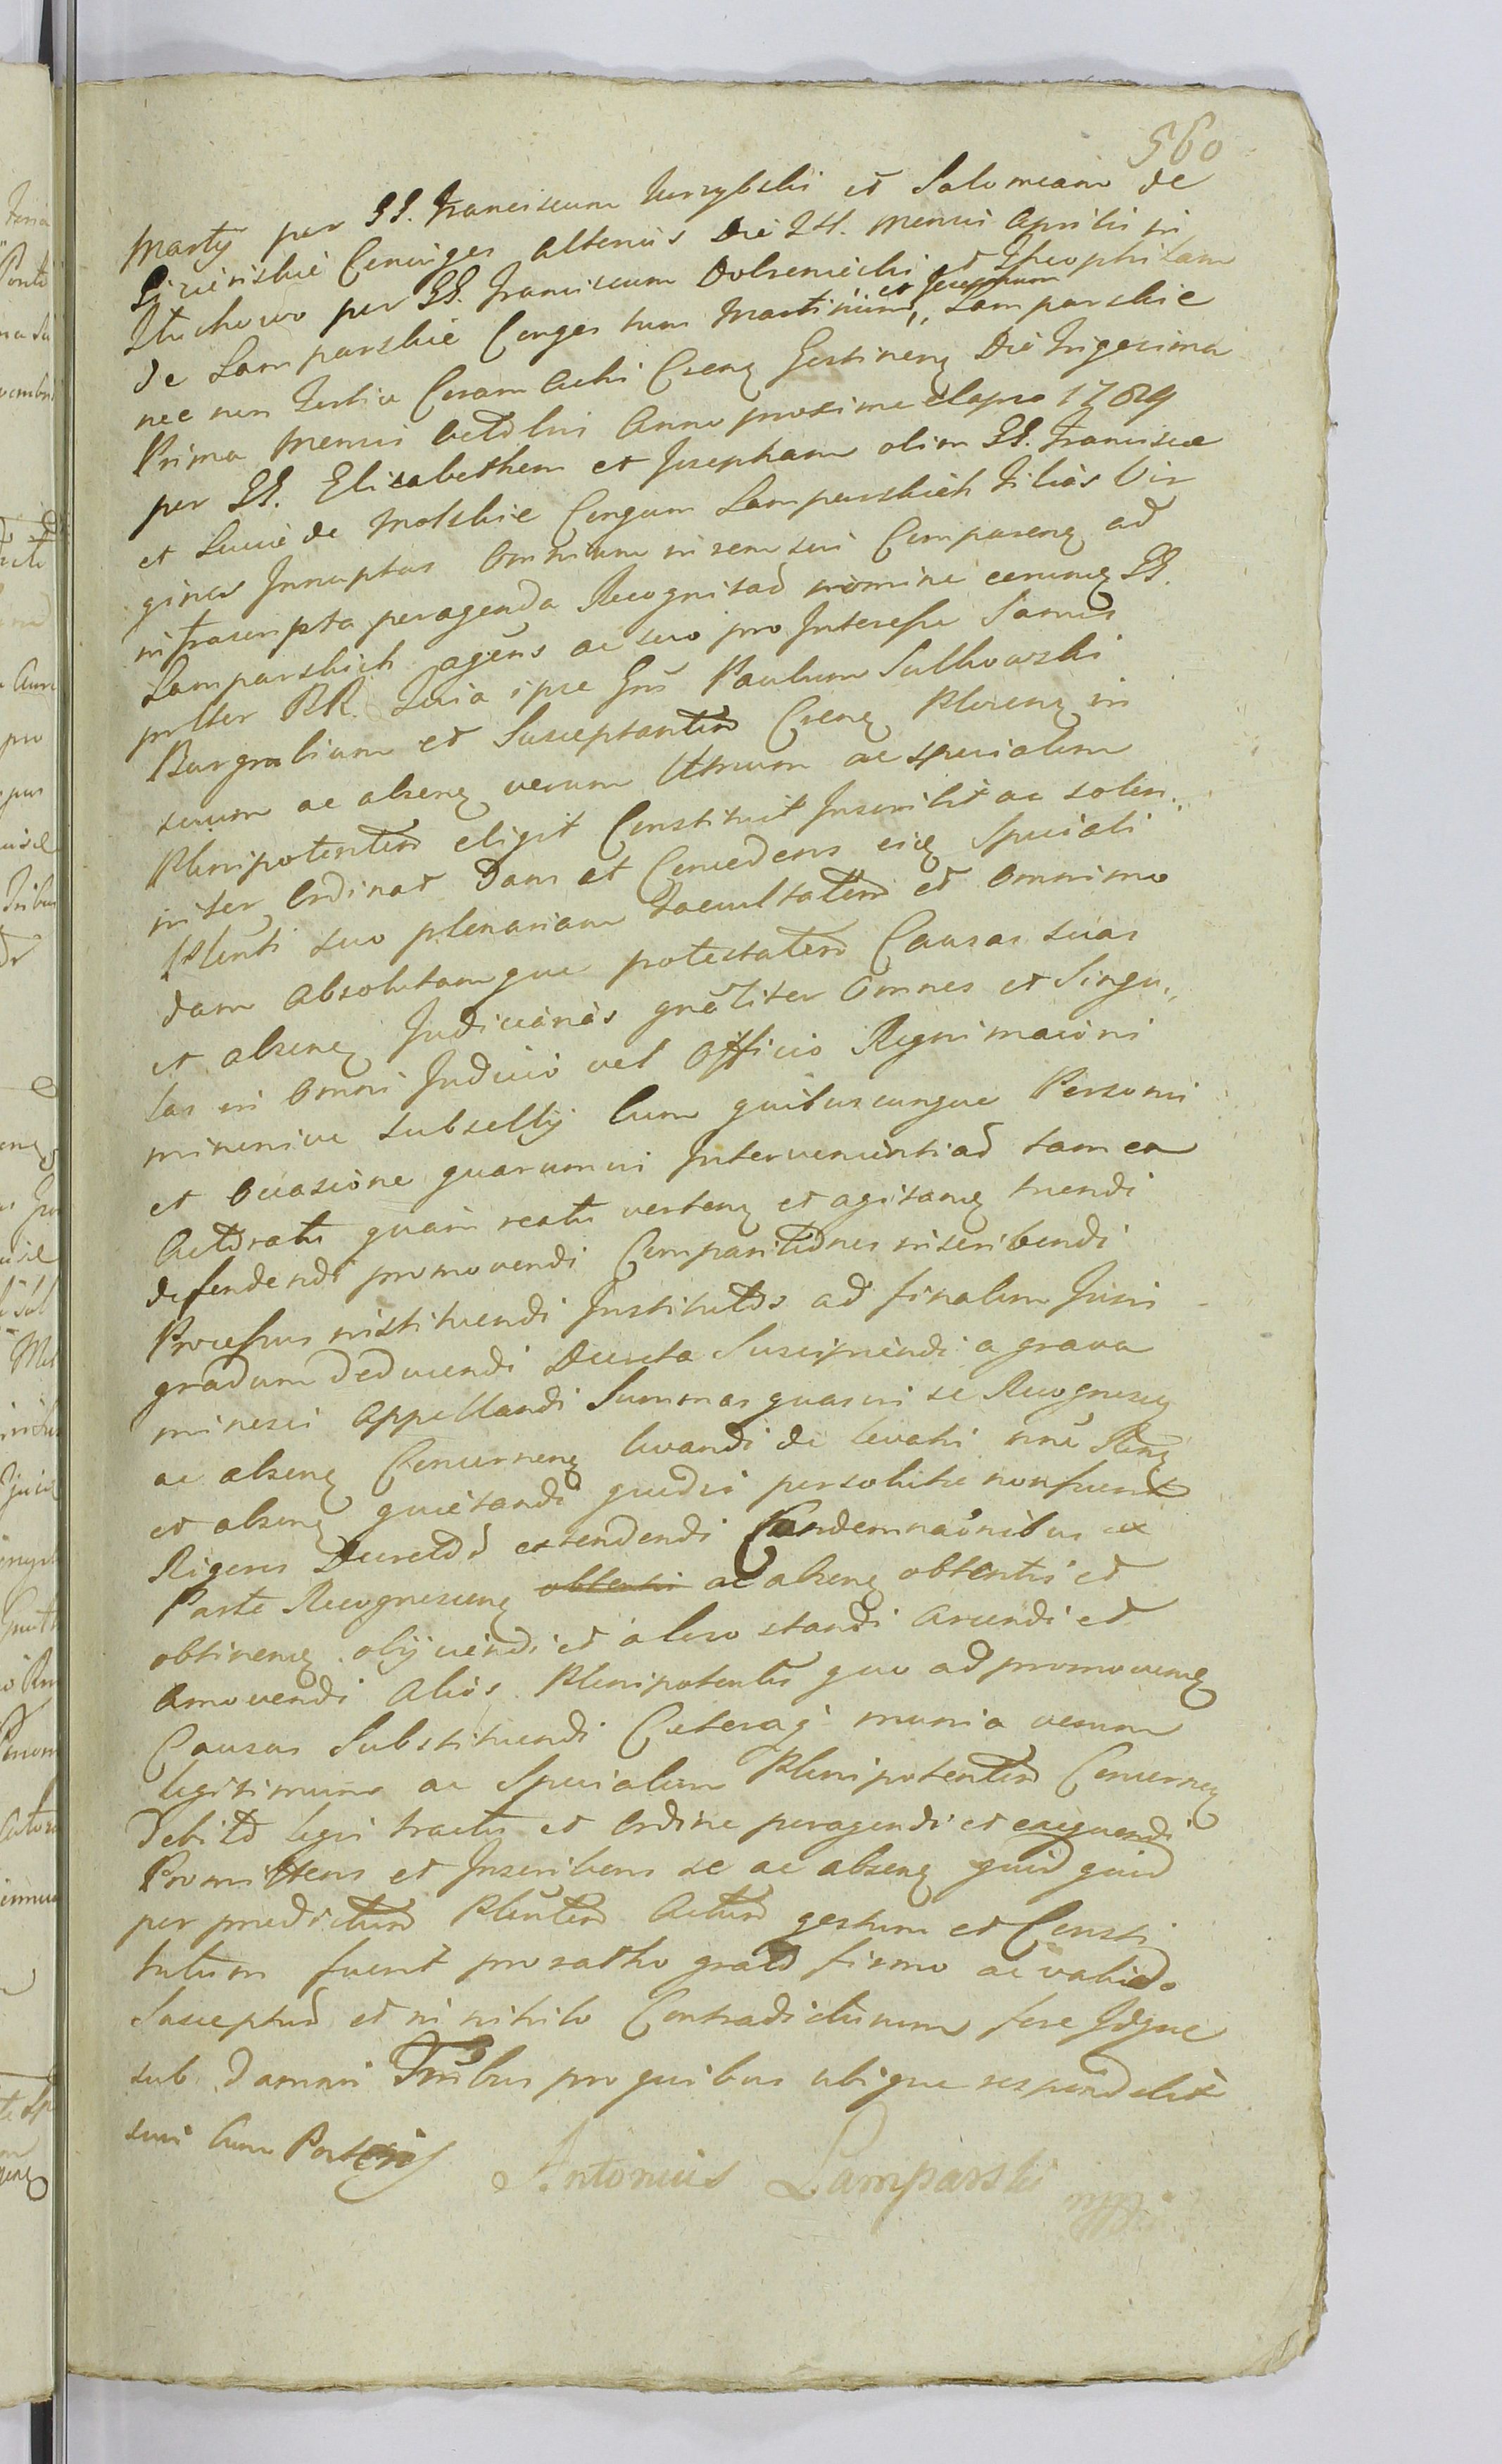 560
Martij per GG. Franciscum Kurzybski et Salomeam de
Conjuges alterius Die 24. mensis Aprilis in
Stuchowo per GG. Franciscum Dobreniecki et Theophilam
de Lamparskie Conges tum Martinum et Josephum Lamparskie
nec non tertia Coram Actis Csen Gestinen Die Trigesima
Prima Mensis Octobris Anno proxime elapso 1789
per GG. Elisabetham et Josepham olim GG. Francisci
et Lucie de Molskie Congum Lamparskich Filias Vir
gines Innuptas Omnium in rem sui Comparen ad
infrascripta peragenda Recognitad nomine eorumq GG.
Lamparskich agens ac suo pro Interesse Samet
prtter RR. Turia ipse Gns Paulum Sulkowski
Burgrabium et Susceptantem Csen Plocen in
suum ac absen verum Uttium ac specialem
Plenipotentem eligit Constituit Inscribit ac solen„
niter Ordinat Dans et Concedens eidq Speciali
Plenti suo plenariam Facultatem et omnimo
dam Absolutamque potestatem Causas suas
et absen Judiciarias gnaliter Omnes et Singu„
las in Omni Judicio vel Officio Regni maioris
minorive subsellij Cum quibuscunque Personis
et Occasione quarumvis Intervenientiad tam ex
Actoratu quam reatu verten et agitanq tuendi
defendendi promovendi Comparitiones inscribendi
Processus instituendi Institutos ad finalem Juris
gradum deducendi Decreta Suscipiendi a grava
minosis Appellandi Summas quasvis se Recognoscen
ac absen Concernen levandi de levatis nne
et absen quietandi quodsi persolute non fuerint
Rigores Decretor extendendi Condemnaonibus ex
Parte Recognoscen obtentis ac absen obtentis et
obtinen obijciendi et a loco standi Arcendi et
Amovendi Alios Plenipotentes quo ad promoven
Causas Substituendi Ceteraq munia verum
legitimum ac Specialem Plenipotentem Concernen
Debito legis tractu et Ordine peragendi et exequendi
Promittens et Inscribens se ac absen quid quid
per predictum Plentem Actum gestum et Consti
tutum fuerit pro ratho grato firmo ac valido
Suscepturum et in nihilo Contradicturum fore Idque
sub Damnis Tribus pro quibus ubique respondebit
suis Cum Posteris Antonius Lamparski